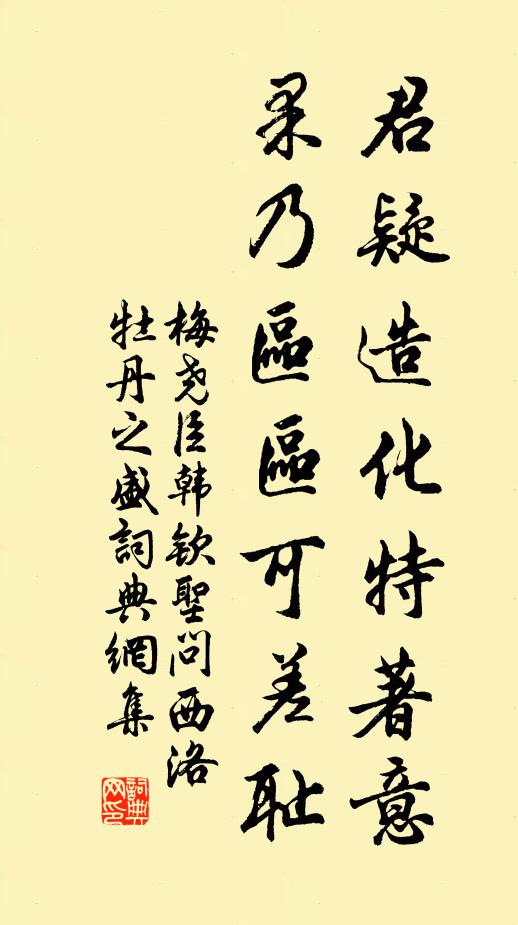 君疑造化特著意
果乃區區可差恥
梅尧臣韩欽聖问西洛
牡丹之盛詞典網集
詞典
网印